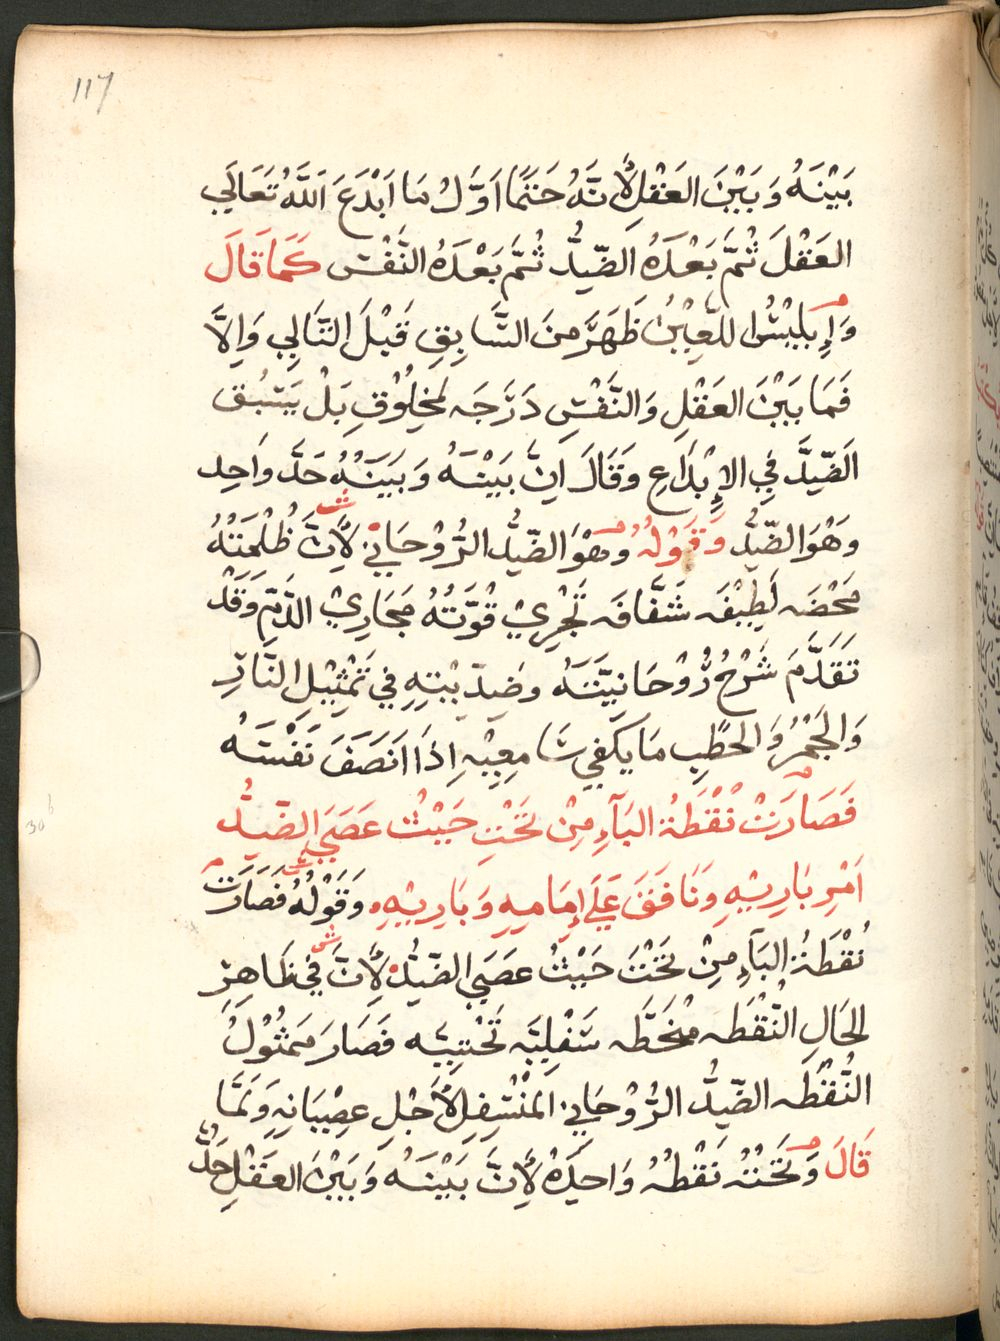 117
بَيْنَهُ وَبَيْنَ العَقْلِ لأَنَّهُ حَتمًا اَوَّلُ مَا اَبْدَعَ اَللَّهُ تَعَالَي
العَقْلَ ثُمَّ بَعْدَهُ الضِّدُّ ثُمَّ بَعْدَهُ النَّفْسَ كَمَا قَالَ
وَاِبْلِيْسُ اللَّعِيْنُ ظَهَرَ مِنَ السَّابِقِ قَبْلَ التَّالِي وَاِلاَّ
فَمَا بَيْنَ العَقْلِ وَالنَّفْسِ دَرَجَه لمخلُوْقٍ بَلْ يَسْبُق
اَلضِّدَّ فِي الاِبْدَاعِ وَقَالَ اِنَّ بَيْنَهُ وَبَيْنَهُ حَدَّ واَحِد
وَهْوَ الضِّدُّ وَقَوْلُهُ وَهْوَ الضِّدُّ الرُّوْحَانِي ش لأَنَّ ظُلْمَتَهُ
مَحْضَه لَطِيْفَه شَفَّافَه تَجْرِيْ قُوَّتُهُ مَجَارِيْ الدَّمِ وَقَدْ
تَقَدَّمَ شَرْحُ رُوْحَانِيَّتَهُ وضِدِّيْتِهِ فِي تَمْثِيْلِ النَّارِ
وَالجَمْرُ وَالحَطَبِ مَا يَكْفِي سَامِعِيْهِ اِذَا اَنَصَفَ نَفْسَهُ
فَصَارَتْ نُقْطَةُ البَآءِ مِنْ تَحْتِ حَيْثُ عَصَي الضِّدُّ
اَمْرِ بَارِيْهِ وَنَافَقَ عَلَي اِمَامِهِ وَبَارِيْهِ ش وَقَوْلُهُ فَصَارَت
نُقْطَةُ البَآءِ مِنْ تَحْتَ حَيْثُ عَصَي الضِّدُّ ش لأَنَّ فِي ظَاهِرِ
الحَالِ النُّقْطَه مُنْحَطَّه سَفْلِيَّه تَحْتِيَّه فَصَارَ مَمْثُوْلُ
النُّقْطَه الضِّدُّ الرُّوْحَانِي المنْسَفِلِ لأَجْلِ عِصْيَانِهِ وَلَمَّا
قَالَ وَتَحْتَهُ نَقْطَهْ وَاحِدَهْ لأَنَّ بَيْنَهُ وَبَيْنَ العَقْلِ حَدَّ